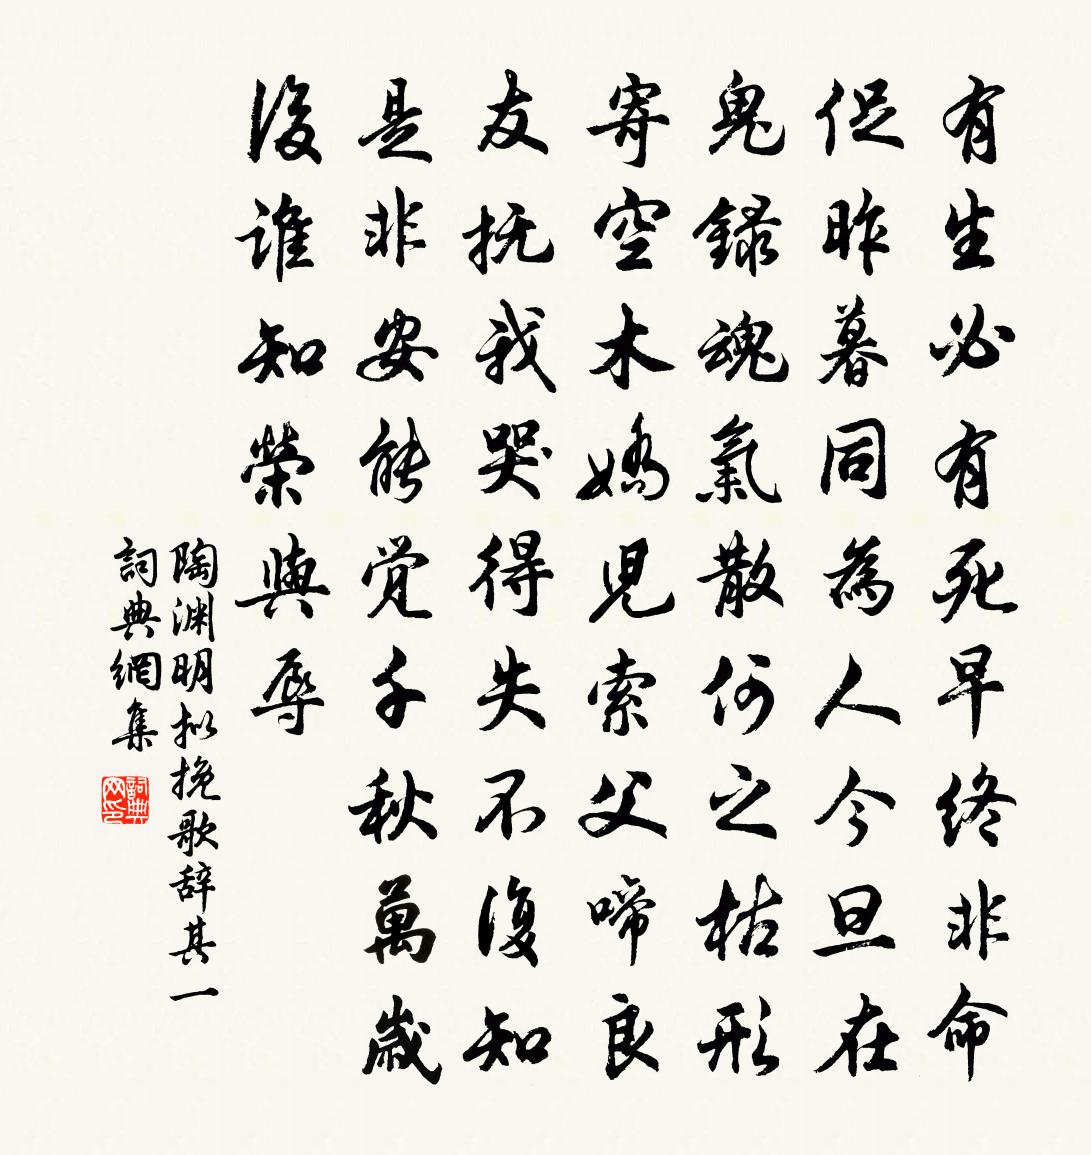 有生必有死早终非命
促昨暮同為人今旦在
鬼録魂氣散何之枯形
寄空木嬌児索父啼良
友抚我哭得失不復知
是非安能觉千秋萬歳
後谁知榮與辱
陶渊明拟挽歌辞其一
詞典網集
詞典网印